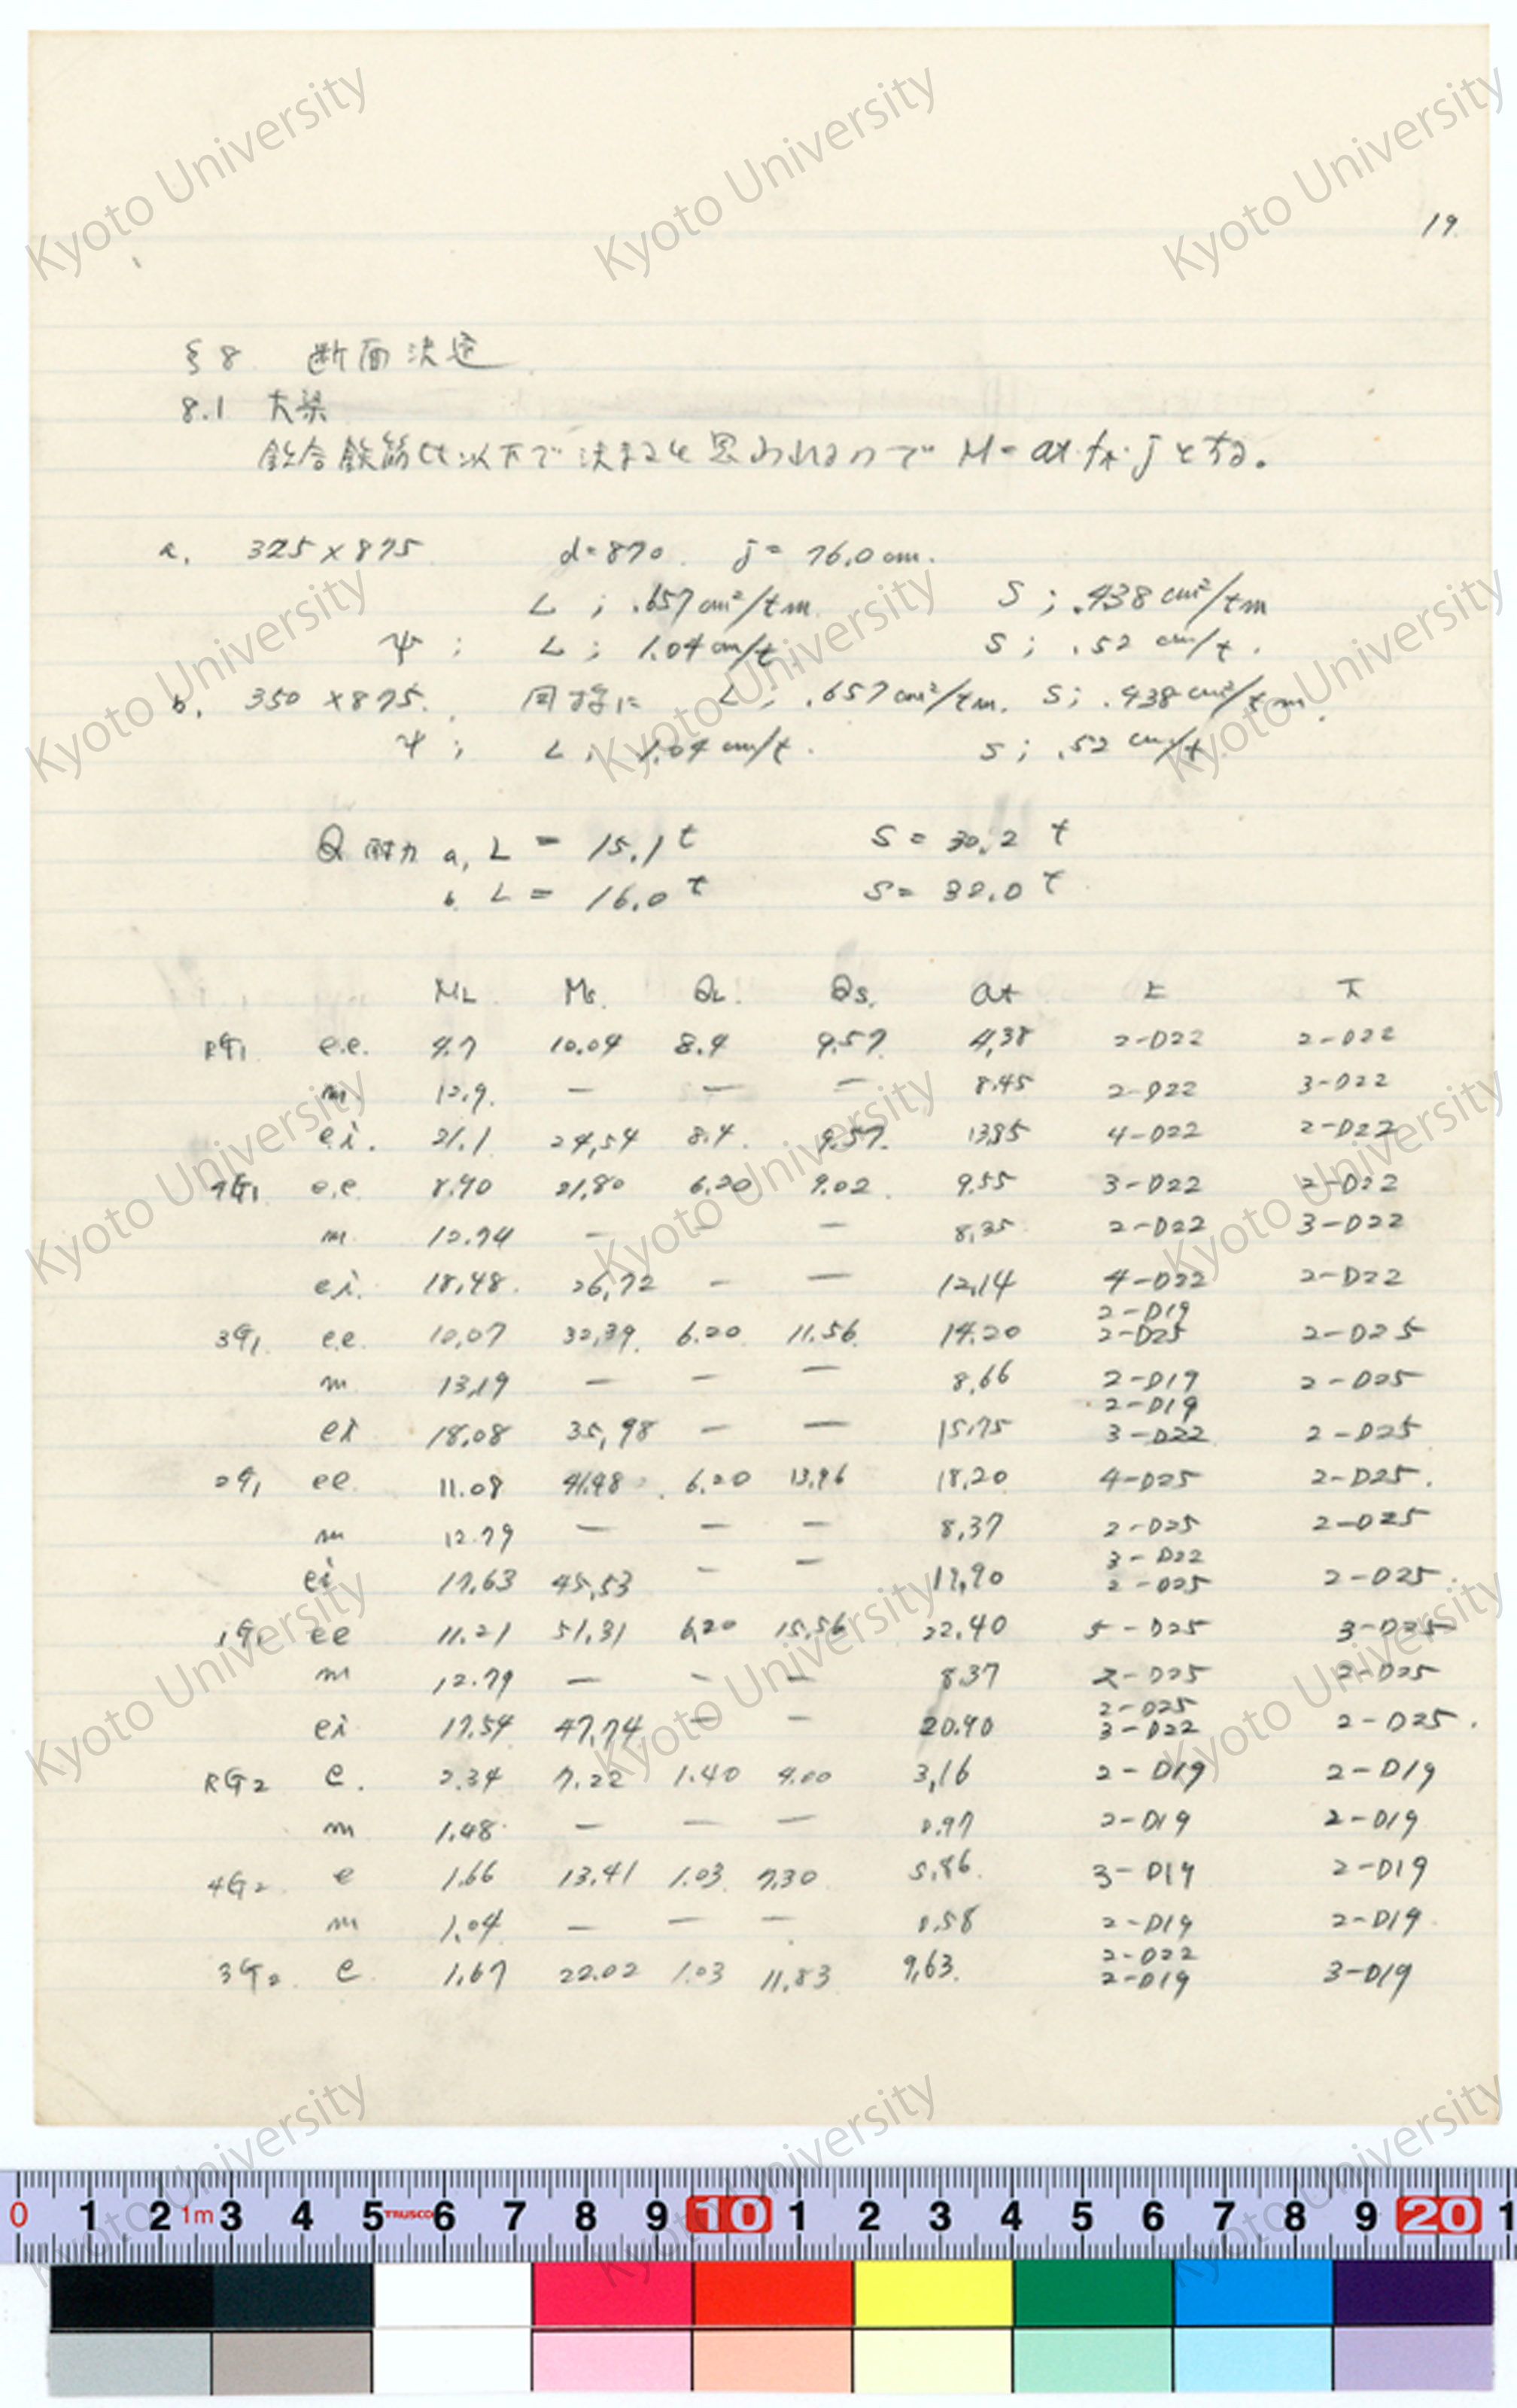 19.
§8. 断面決定
8.1 大梁
釣合鉄筋比以下で決まると思われるので M=at・ft・j とする。
a. 325×875 d=870. j=76.0cm.
L ; .657cm²/tm. S ; .438cm²/tm
ψ ; L ; 1.04cm/t. S ; .52 cm/t.
b. 350×875. 同様に L ; .657cm²/tm. S ; .438cm²/tm.
ψ ; L ; 1.04cm/t. S ; .52 cm/t.
Q 耐力 a, L = 15.1t S = 30.2 t
b. L = 16.0t S = 32.0 t
ML. Ms. QL. Qs. at 上 下
RG1 e.e. 4.7 10.04 8.4 9.57. 4.38 2-D22 2-D22
m 12.9. — — — 8.45 2-D22 3-D22
e.i. 21.1 24.54 8.4. 9.57. 13.85 4-D22 2-D22
4G1 e.e 8.90 21.80 6.20 9.02. 9.55 3-D22 2-D22
m 12.74 — - — 8.35 2-D22 3-D22
ei. 18.48. 26.72 — — 12.14 4-D22 2-D22
3G1 e.e. 10.07 32.39. 6.20. 11.56. 14.20 2-D19 2-D25 2-D25
m 13.19 — — — 8.66 2-D19 2-D25
ei 18.08 35.98 — — 15.75 2-D19 3-D22 2-D25
2G1 ee. 11.08 41.48. 6.20 13.96 18.20 4-D25 2-D25.
m 12.79 — — — 8.37 2-D25 2-D25
ei 17.63 45.53 — — 19.90 3-D22 2-D25 2-D25.
1G1 ee 11.21 51.31 6.20 15.56 22.40 5-D25 3-D25
m 12.79 — - — 8.37 2-D25 2-D25
ei 17.54 47.74 — — 20.90 2-D25 3-D22 2-D25.
RG2 e. 2.34 7.22 1.40 4.00 3.16 2-D19 2-D19
m 1.48 — — — 0.97 2-D19 2-D19
4G2 e 1.66 13.41 1.03 7.30 5.86. 3-D19 2-D19
m 1.04 — — — 0.58 2-D19 2-D19.
3G2 e. 1.67 22.02 1.03 11.83 9.63. 2-D22 2-D19 3-D19
0 1 2 1m 3 4 5 TRUSCO 6 7 8 9 10 1 2 3 4 5 6 7 8 9 20 1
Kyoto University